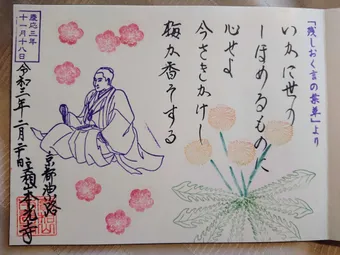 「残しおく言の葉草」より
しほめるものに
心せよ
今さきかけし
梅か香そする
慶応三年
十一月十八日
京都油小路
本光寺
令和三年二月